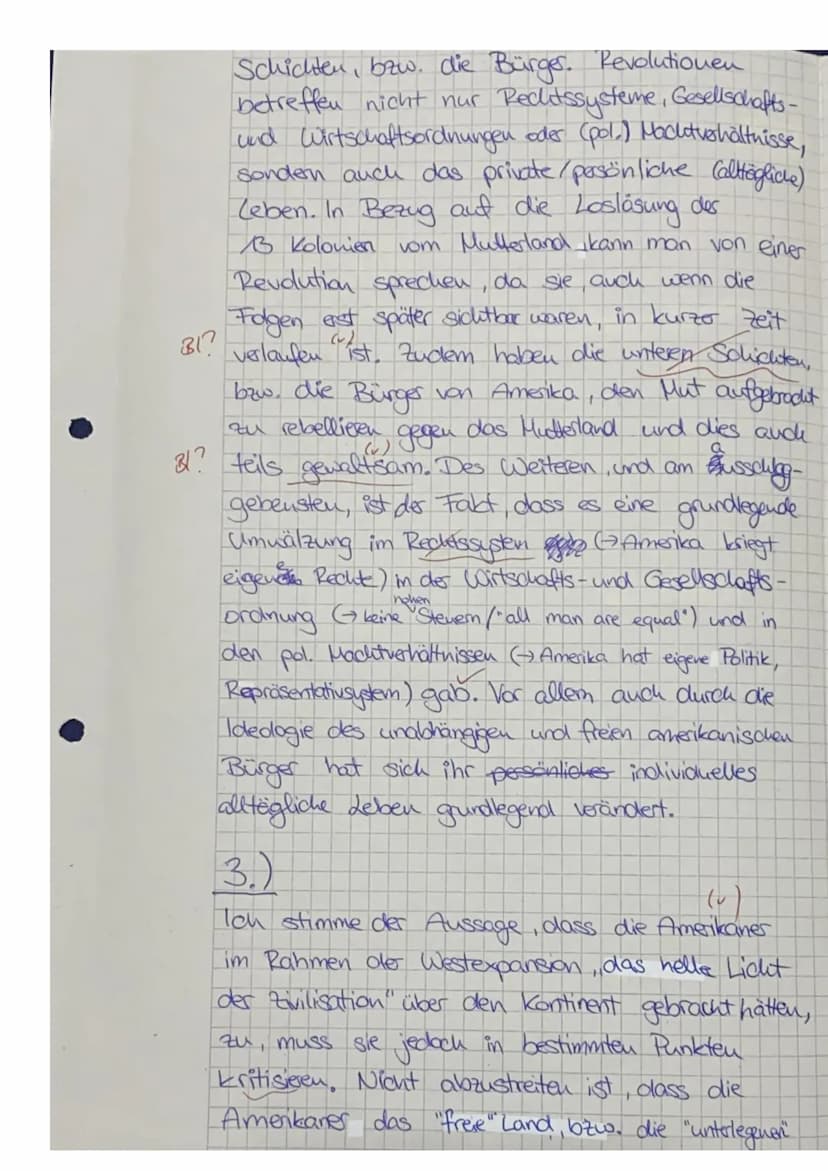 Schichten, bzw. die Bürger. Revolutionen
betreffen nicht nur Rechtssysteme, Gesellschafts-
und Wirtschaftsordnungen oder (pol.) Machtverhältnisse,
sondern auch das private/persönliche (alltägliche)
Leben. In Bezug auf die Loslösung der
13 Kolonien vom Mutterland, kann man von einer
Revolution sprechen, da sie, auch wenn die
Folgen erst später sichtbar waren, in kurzer Zeit
(v)
B1? verlaufen ist. Zudem haben die unteren Schichten,
bzw. die Bürger von Amerika, den Mut aufgebracht
zu rebellieren gegen das Mutterland und dies auch
(v)
B1? teils gewaltsam. Des Weiteren, und am ausschlag-
gebensten, ist der Fakt, dass es eine grundlegende
Umwälzung im Rechtssystem (→ Amerika kriegt
eigene Recht) in der Wirtschafts- und Gesellschafts-
ordnung (→ keine hohen Steuern/"all man are equal") und in
den pol. Machtverhältnissen (→ Amerika hat eigene Politik,
Repräsentativsystem) gab. Vor allem auch durch die
Ideologie des unabhängigen und freien amerikanischen
Bürger hat sich ihr persönliches individuelles
alltägliche Leben grundlegend verändert.
3.)
(v)
Ich stimme der Aussage, dass die Amerikaner
im Rahmen der Westexpansion „das helle Licht
der Zivilisation" über den Kontinent gebracht hätten,
zu, muss sie jedoch in bestimmten Punkten
kritisieren. Nicht abzustreiten ist, dass die
Amerikaner das "freie" Land, bzw. die "unterlegenen"